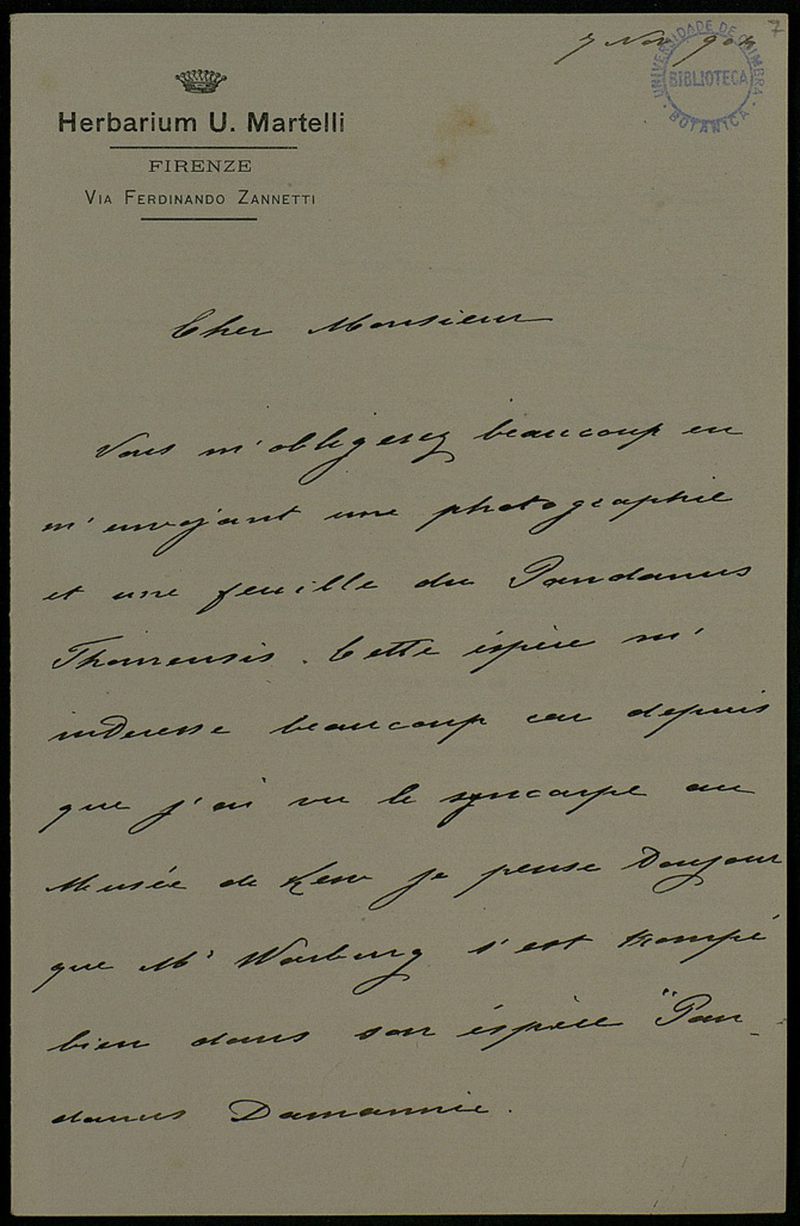 7
7 Nov. 904
UNIVERSIDADE DE COIMBRA
BIBLIOTECA
BOTANICA
Herbarium U. Martelli
FIRENZE
VIA FERDINANDO ZANNETTI
Cher Monsieur
Vous m'obligerez beaucoup en
m'envojant une photographie
et une feuille du Pandanus
Thomensis. Cette éspèce m'
interesse beaucoup car depuis
que j'ai vu le syncarpe au
Musée de Kew je pense toujour
que Mr Warburg s'est trompé
bien dans son éspèce "Pan-
danus Damannie.